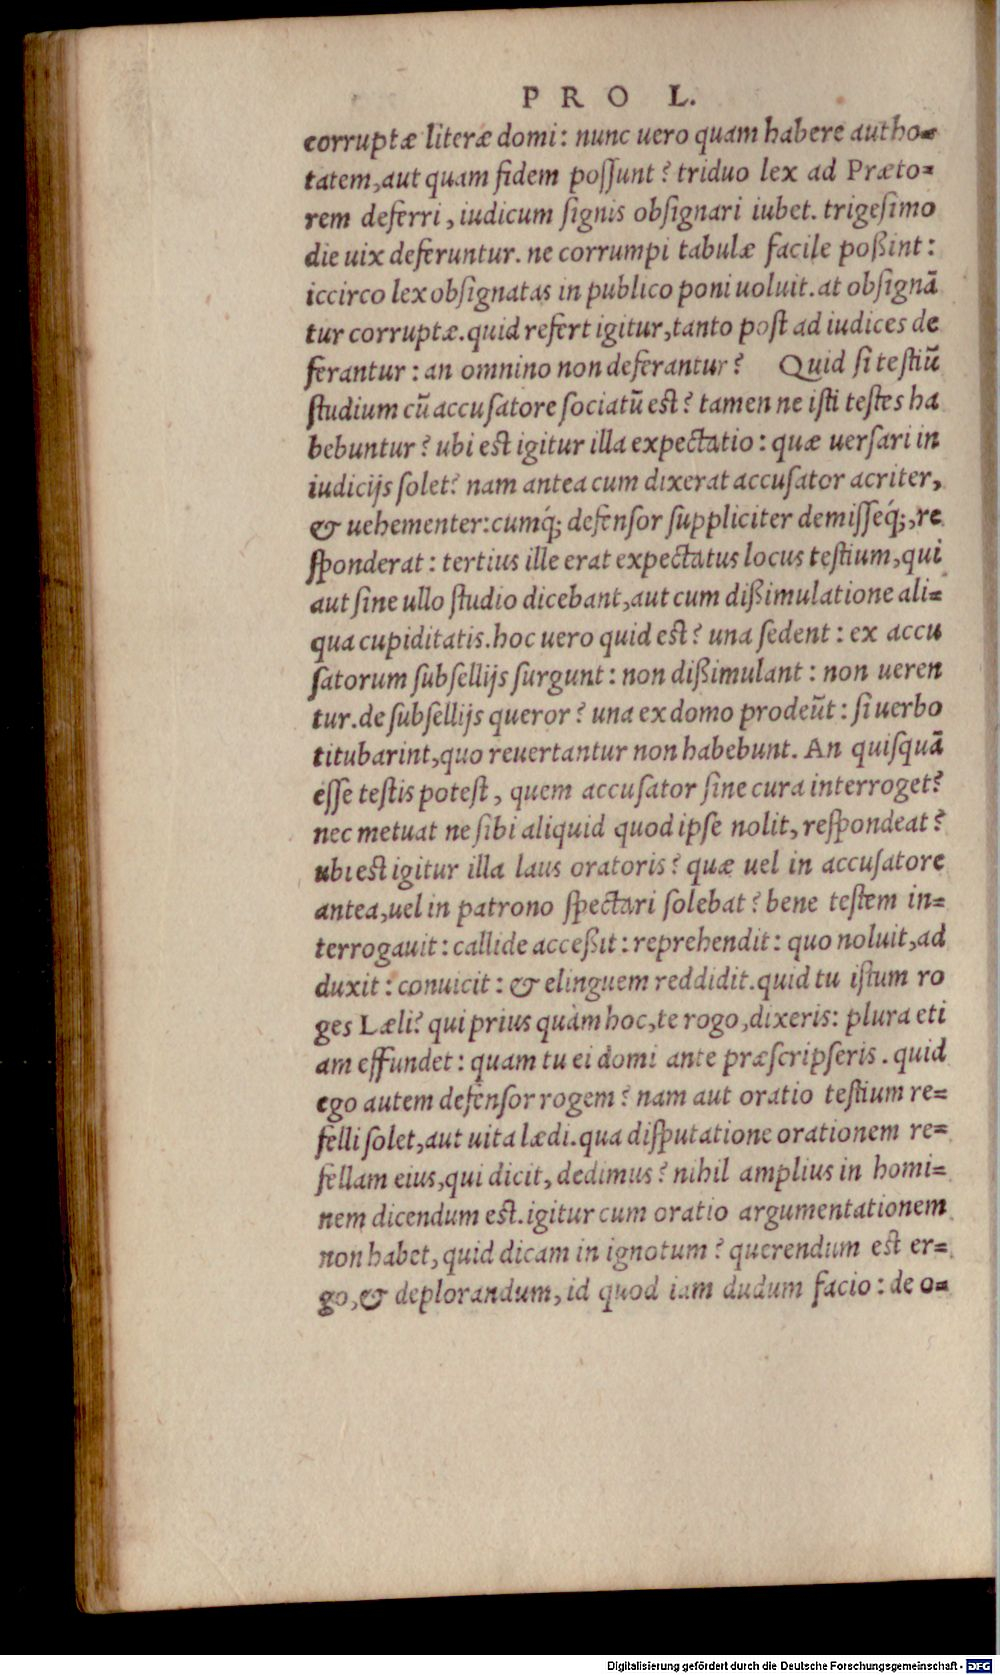 PRO L.
corruptæ literæ domi: nunc uero quam habere autho-
tatem, aut quam fidem possunt? triduo lex ad Præto-
rem deferri, iudicum signis obsignari iubet. trigesimo
die uix deferuntur. ne corrumpi tabulæ facile poßint:
iccirco lex obsignatas in publico poni uoluit. at obsignã
tur corruptæ. quid refert igitur, tanto post ad iudices de
ferantur: an omnino non deferantur? Quid si testiũ
studium cũ accusatore sociatũ est? tamen ne isti testes ha
bebuntur? ubi est igitur illa expectatio: quæ uersari in
iudicijs solet? nam antea cum dixerat accusator acriter,
& uehementer: cumq́; defensor suppliciter demisseq́;, re
sponderat: tertius ille erat expectatus locus testium, qui
aut sine ullo studio dicebant, aut cum dißimulatione ali-
qua cupiditatis. hoc uero quid est? una sedent: ex accu
satorum subsellijs surgunt: non dißimulant: non ueren
tur. de subsellijs queror? una ex domo prodeũt: si uerbo
titubarint, quo reuertantur non habebunt. An quisquã
esse testis potest, quem accusator sine cura interroget?
nec metuat ne sibi aliquid quod ipse nolit, respondeat?
ubi est igitur illa laus oratoris? quæ uel in accusatore
antea, uel in patrono spectari solebat? bene testem in-
terrogauit: callide acceßit: reprehendit: quo noluit, ad
duxit: conuicit: & elinguem reddidit. quid tu istum ro
ges Læli? qui prius quàm hoc, te rogo, dixeris: plura eti
am effundet: quam tu ei domi ante præscripseris. quid
ego autem defensor rogem? nam aut oratio testium re-
felli solet, aut uita lædi. qua disputatione orationem re-
fellam eius, qui dicit, dedimus? nihil amplius in homi-
nem dicendum est. igitur cum oratio argumentationem
non habet, quid dicam in ignotum? querendum est er-
go, & deplorandum, id quod iam dudum facio: de o-
Digitalisierung gefördert durch die Deutsche Forschungsgemeinschaft - DFG